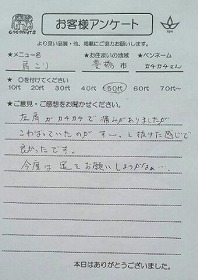 COCONUTS
お客様アンケート
より良い品質・他、掲載にご協力お願いします。
★メニュー名 ★お住まいの地域 ★ペンネーム
肩こり 豊橋 市 カチカチさん
★○を付けてください
10代 20代 30代 40代 50代 60代 70代〜
★ご意見・ご感想をお聞かせください。
左肩がカチカチで痛みがありましたが
こわばっていたのが すー、と抜けた感じで
良かったです。
今度は 足でお願いしようかなぁ…
本日はありがとうございました。